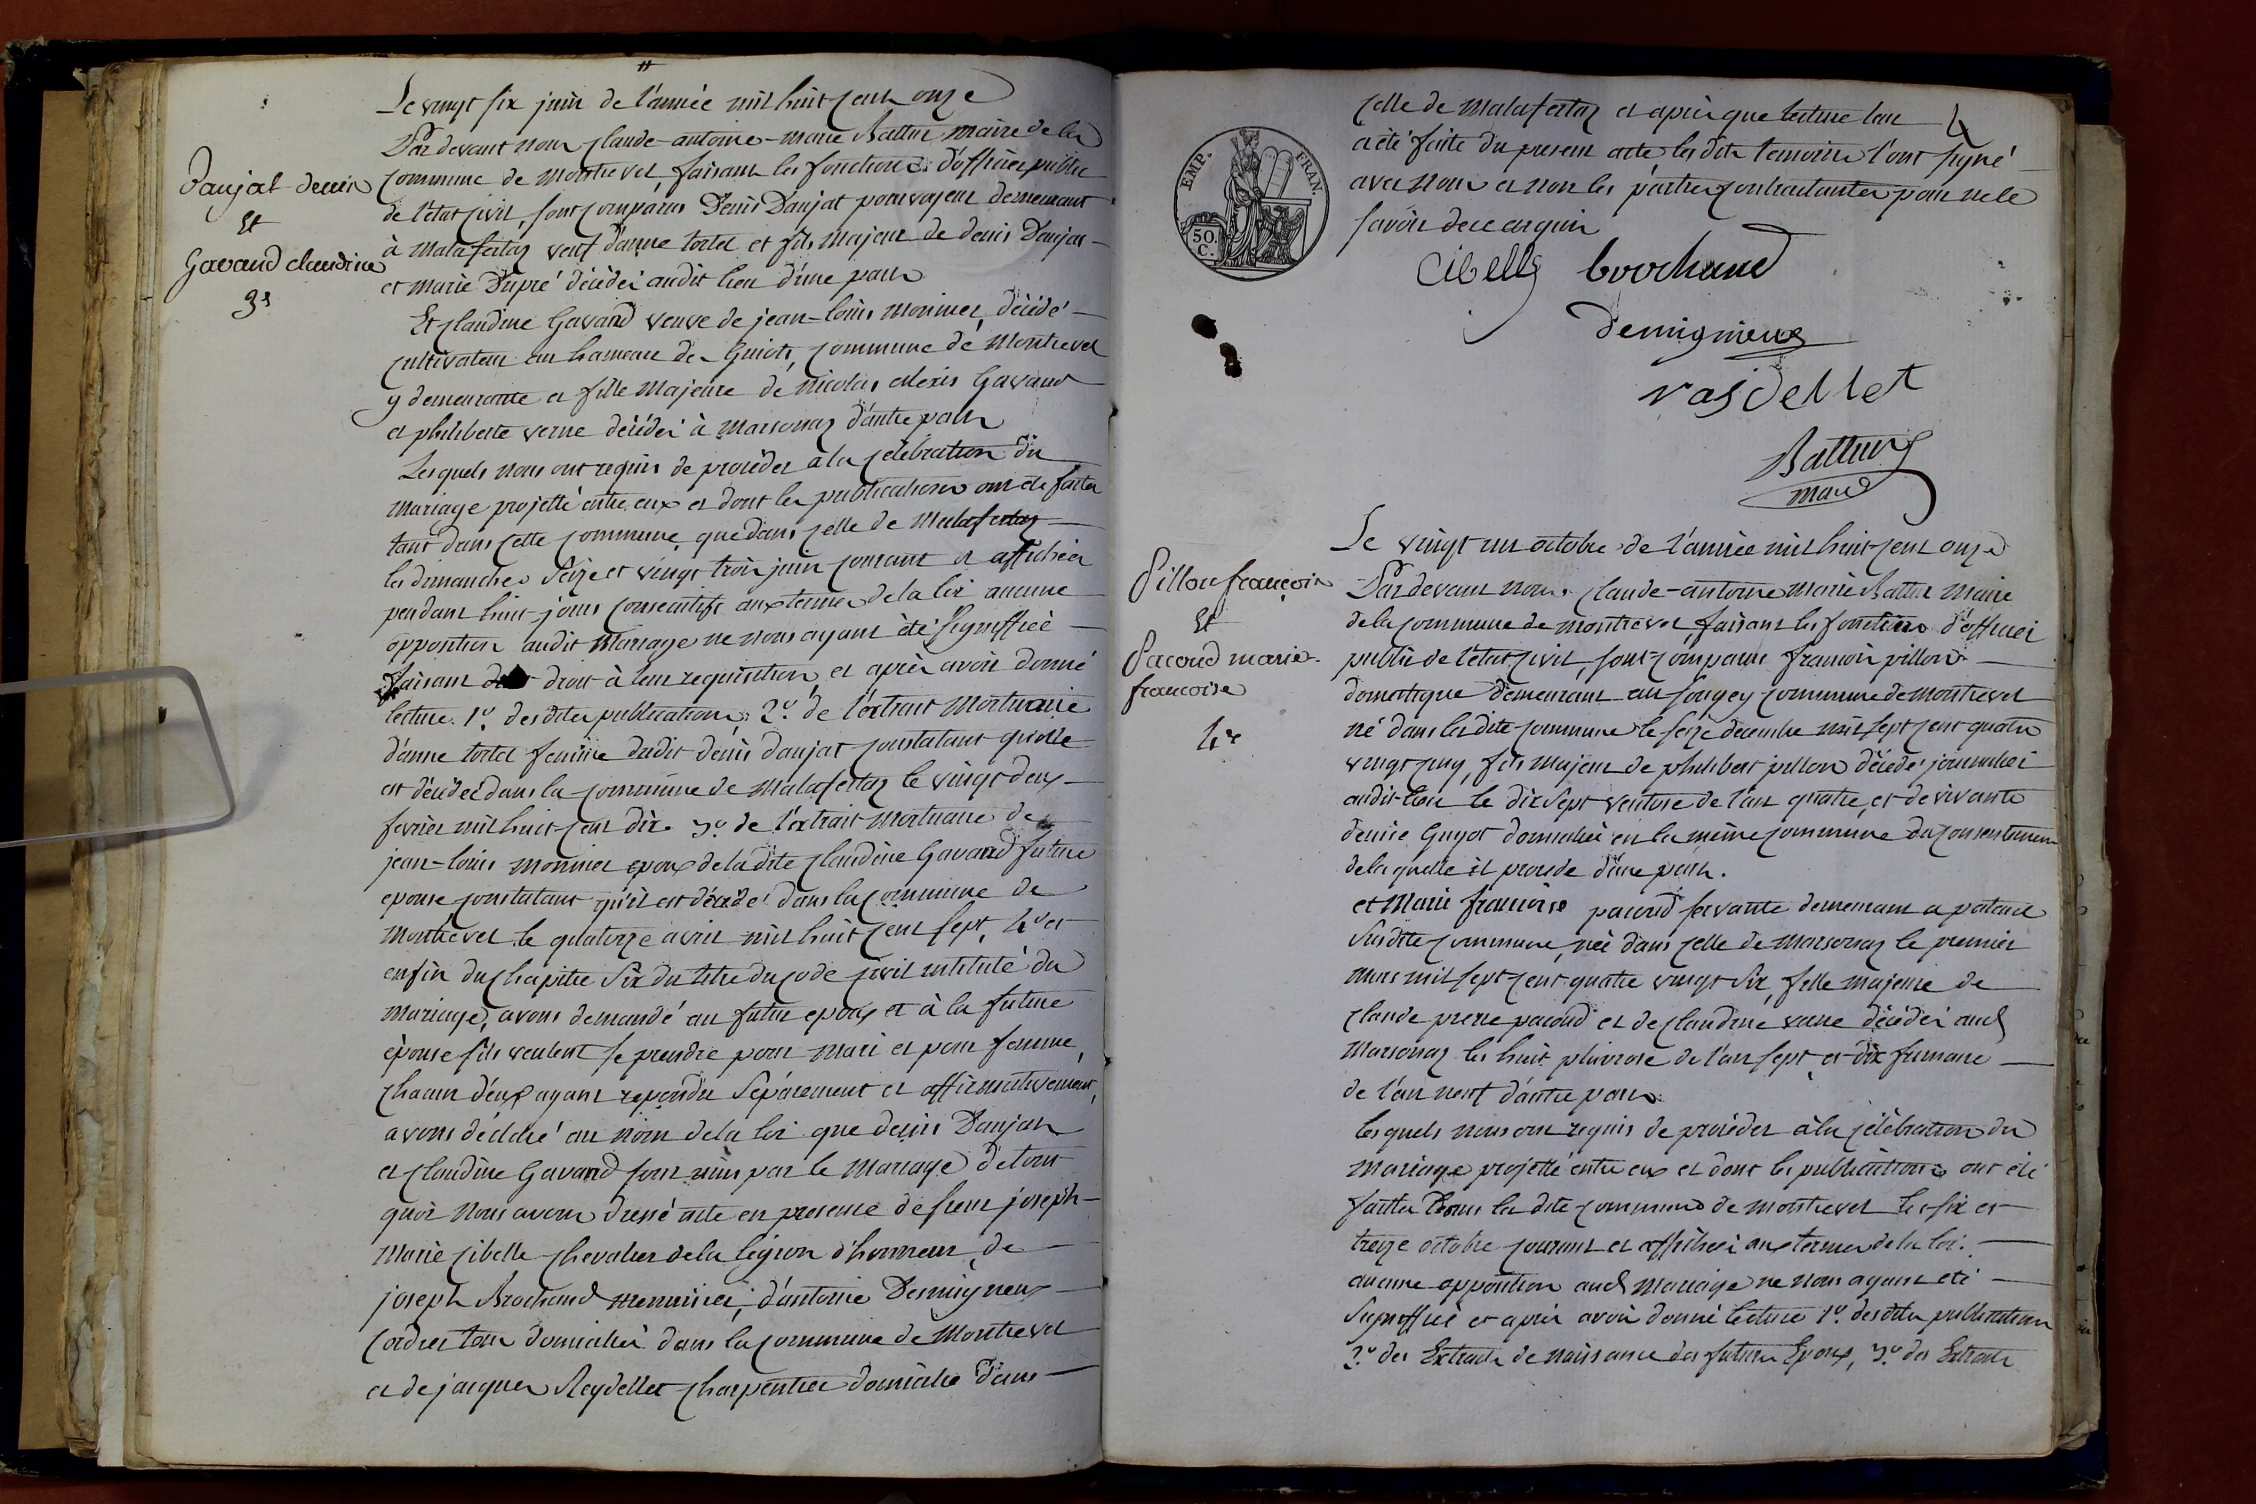 Daujat denis
Et
Gavand claudine
3e
Le vingt six juin de l'année mil huit cent onze
Par devant nous claude-antoine-marie Battur maire de la
commune de montrevel, faisant les fonctions d'officier public
de l'état civil, sont comparus Denis Daujat pourvoyeur demeurant
à malafertaz veuf d'anne tortel et fils majeur de denis Daujat
et marie Dupré décédés audit lieu d'une part
Et claudine Gavand veuve de jean-louis monnier, décédé
cultivateur au hameau des Guiots, commune de Montrevel
y demeurante et fille majeure de nicolas alexis Gavand
et philiberte verne décédés à marsonnaz d'autre part
Lesquels nous ont requis de procéder à la célébration du
mariage projetté entre eux et dont les publications ont été faites
tant dans cette commune, que dans celle de Malafertaz
les dimanches seize et vingt trois juin courant et affichées
pendant huit jours consecutifs aux termes de la loi aucune
opposition audit Mariage ne nous ayant été signiffiée
faisant droit à leur requisition et après avoir donné
lecture 1º. des dites publications, 2º. de l'extrait Mortuaire
d'anne tortel femme dudit denis daujat constatant qu'elle
est décédée dans la commune de Malafertaz le vingt deux
fevrier mil huit cent dix 3º de l'extrait mortuaire de
jean-louis monnier epoux de la dite claudine Gavand future
epouse constatant qu'il est décédé dans la commune de
Montrevel le quatorze avril mil huit cent sept, 4º et
enfin du chapitre six du titre du code civil intitulé du
mariage, avons demandé au futur epoux et à la future
épouse s'ils veulent se prendre pour mari et pour femme,
chacun d'eux ayant repondu séparement et affirmativement,
avons déclaré au nom de la loi que denis Daujat
et claudine Gavand sont unis par le mariage de tout
quoi nous avons dressé acte en presence de sieur joseph-
Marie cibelle chevalier de la légion d'honneur, de
joseph Brochand menuisier, d'antoine Demigneux
cordier tous domiciliés dans la commune de Montrevel
et de jacques Reydellet charpentier domicilié dans
celle de malafertaz et après que lecture leur
a été faite du present acte les dits temoins l'ont signé
avec nous et non les parties contractantes pour ne le
savoir de ce enquis
4
EMP. FRAN.
50. C.
Cibelle brochand
demigneux
rasdellet
Battur
maire
Pillon françois
Et
Pacoud marie
francoise
4e
Le vingt un octobre de l'année mil huit cent onze
Par devant nous claude-antoine marie Battur Maire
de la commune de montrevel, faisant les fonctions d'officier
public de l'état civil, sont comparus francois pillon
domestique demeurant au sougey commune de montrevel
né dans la dite commune le seize decembre mil sept cent quatre
vingt cinq, fils majeur de philibert pillon décédé journalier
audit lieu le dix sept ventose de l'an quatre, et de vivante
denise Guyot domiciliée en la même commune du consentement
de laquelle il procede d'une part.
et Marie francoise pacoud servante demeurant a
susdite commune, née dans celle de marsonnaz le premier
mars mil sept cent quatre vingt six, fille majeure de
claude pierre pacoud et de claudine verne décédés aud
Marsonnaz les huit pluviose de l'an sept et dix frimaire
de l'an neuf d'autre part.
Lesquels nous ont requis de procéder à la célébration du
mariage projetté entre eux et dont les publications ont été
faittes dans la dite commune de montrevel les six et
treize octobre courant et affichées aux termes de la loi.
aucune opposition aud mariage ne nous ayant été
signiffiée et après avoir donné lecture 1º. des dites publications
2º des Extraits de naissance des futurs Epoux, 3º des Extraits